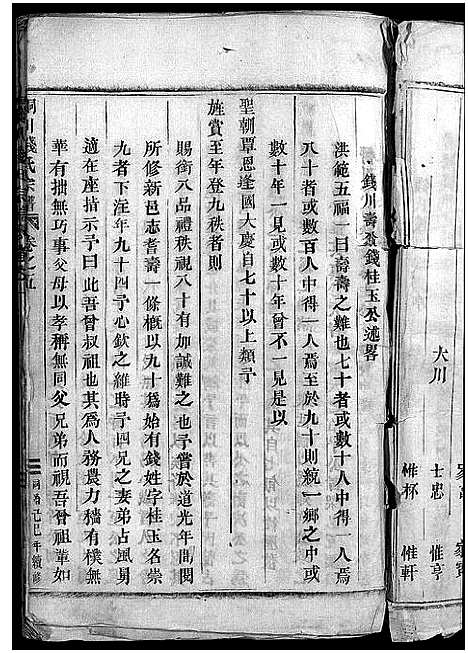 錢川壽翁錢桂玉公述畧
洪範五福一曰壽壽之難也七十者或數十人中得一人焉
八十者或數百人中得一人焉至於九十則統一鄉之中或
數十年一見或數十年曾不一見是以
聖朝覃恩逢國大慶自七十以上類予
旌賞至年登九秩者則
賜銜八品禮秩視八十有加誠難之也予嘗於道光年間閱
所修新邑志耆壽一條概以九十爲始有錢姓字桂玉名崇
九者下注年九十四予心欽之維時予四兄之妻弟占風舅
適在座指示予曰此吾曾叔祖也其爲人務農力穡有樸無
華有拙無巧事父母以孝稱無同父兄弟而視吾曾祖輩如
川錢氏宗譜
卷之五
己巳年續修
大川
士忠
惟杯
惟亨
惟軒